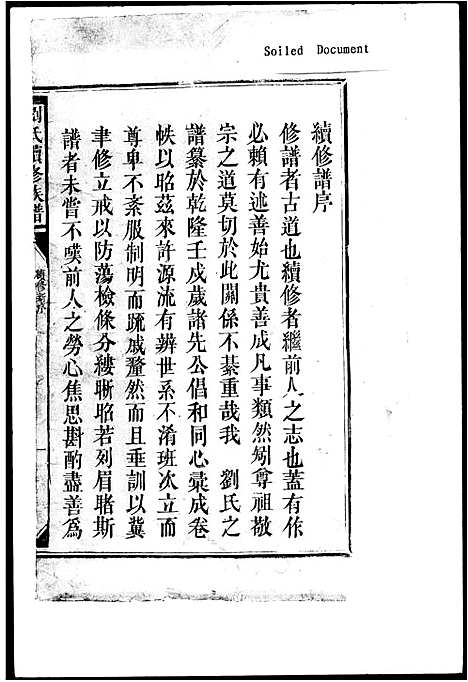 Soiled Document
續修譜序
修譜者古道也續修者繼前人之志也蓋有作
必賴有述善始尤貴善成凡事類然矧尊祖敬
宗之道莫切於此關係不綦重哉我 劉氏之
譜纂於乾隆壬戍歲諸先公倡和同心彚成卷
帙以昭茲來許源流有辨世系不淆班次立而
尊卑不紊服制明而䟽戚釐然而且垂訓以冀
聿修立戒以防蕩檢條分縷晰昭若列眉睹斯
譜者未嘗不嘆前人之勞心焦思斟酌盡善為
劉氏續修族譜
續修譜序